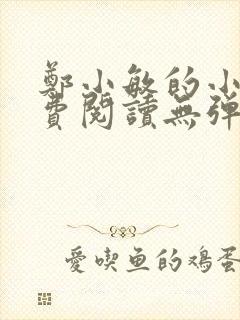 鄭小敏的小
費閱讀無彈
愛喫魚的鸡蛋